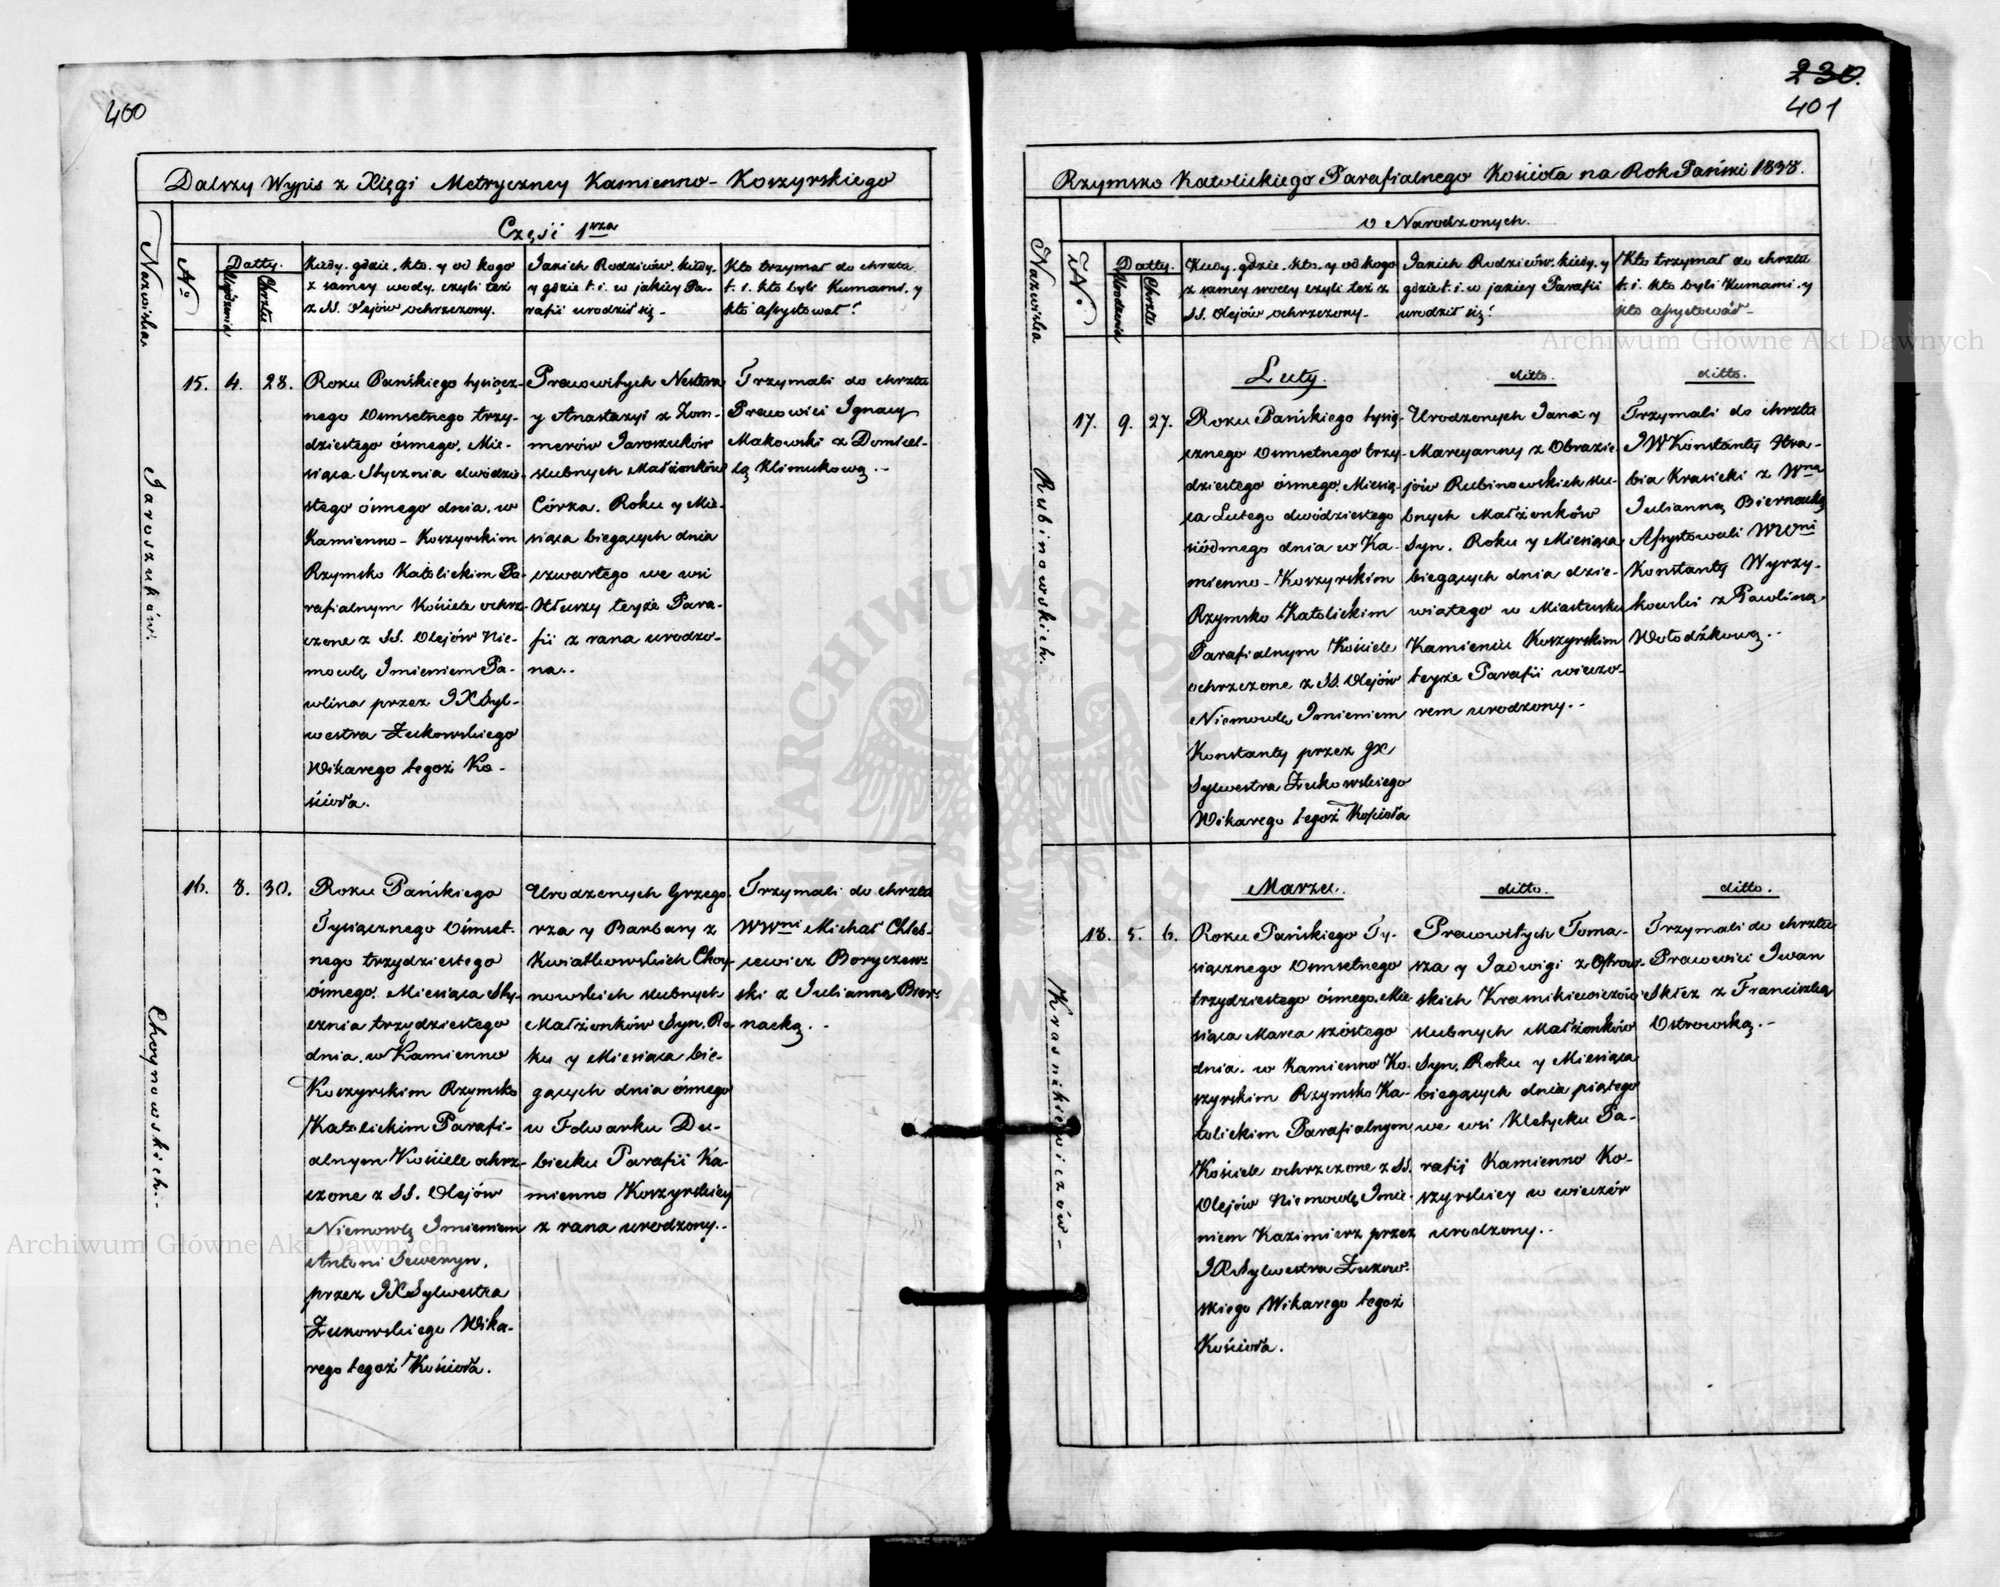 400
Dalszy Wypis z Xięgi Metryczney Kamienno-Koszyrskiego
Część 1rza
Nazwiska
No
Datty.
Urodzenia
Chrztu
Kiedy, gdzie, kto, y od kogo
z samey wody, czyli też
z SS. Olejów ochrzczony.
Jakich Rodziców, kiedy,
y gdzie t. i. w jakiey Pa-
rafii urodził się.
Kto trzymał do chrztu
t. i. kto byli Kumami, y
kto assystował?
Jaroszuków.
15. 4. 28.
Roku Pańskiego tysiącz-
nego Osmsetnego trzy-
dziestego ósmego, Mie-
siąca Stycznia dwódzie-
stego ósmego dnia, w
Kamienno-Koszyrskim
Rzymsko Katolickim Pa-
rafialnym Kościele ochrz-
czone z SS. Olejów Nie-
mowlę Imieniem Pa-
wlina przez JX Syl-
westra Żukowskiego
Wikarego tegoż Ko-
ścioła.
Pracowitych Nestera
y Anastazyi z Zom-
merów Jaroszuków
slubnych Małżonków
Córka. Roku y Mie-
siąca biegących dnia
czwartego we wsi
Hłuszy teyże Para-
fii z rana urodzo-
na..
Trzymali do chrztu
Pracowici Ignacy
Makowski z Domicel-
lą Klimukową.-
Choynowskich.
16. 8. 30.
Roku Pańskiego
Tysiącznego Ośmset-
nego trzydziestego
ósmego, Miesiąca Sty-
cznia trzydziestego
dnia, w Kamienno
Koszyrskim Rzymsko
Katolickim Parafi-
alnym Kościele ochrz-
czone z SS. Olejów
Niemowlę Imieniem
Antoni Seweryn,
przez JX Sylwestra
Żukowskiego Wika-
rego tegoż Kościoła.
Urodzonych Grzego-
rza y Barbary z
Kwiatkowskich Choy-
nowskich slubnych
Małżonków Syn, Ro-
ku y Miesiąca bie-
gących dnia ósmego
w Folwarku Du-
biecku Parafii Ka-
mienno Koszyrskiey
z rana urodzony.-
Trzymali do chrztu
WWni Michał Chleb-
icewicz Boryczew-
ski z Julianną Bier-
nacką.-
230.
401
Rzymsko Katolickiego Parafialnego Kościoła na Rok Pański 1838.
o Narodzonych.
Nazwiska
No.
Datty.
Urodzenia
Chrztu
Kiedy, gdzie, kto, y od kogo
z samey wody czyli też z
SS. Olejów ochrzczony.
Jakich Rodziców, kiedy, y
gdzie t. i. w jakiey Parafii
urodził się?
Kto trzymał do chrztu
t. i. kto byli Kumami, y
kto assystował-
Rubinowskich.
Luty. ditto. ditto.
17. 9. 27.
Roku Pańskiego tysią-
cznego Osmsetnego trzy-
dziestego ósmego, Miesią-
ca Lutego dwódziestego
siódmego dnia w Ka-
mienno-Koszyrskim
Rzymsko Katolickim
Parafialnym Kościele
ochrzczone z SS. Olejów
Niemowlę Imieniem
Konstanty przez JX
Sylwestra Żukowskiego
Wikarego tegoż Kościoła
Urodzonych Jana y
Maryanny z Obrazie-
jów Rubinowskich slu-
bnych Małżonków
Syn. Roku y Miesiąca
biegących dnia dzie-
wiątego w Miasteczku
Kamieniu Koszyrskim
teyże Parafii wieczo-
rem urodzony.-
Trzymali do chrztu
JW Konstanty Hra-
bia Krasicki z Wną
Julianną Biernacką
Assystowali WWni
Konstanty Wyrzy-
kowski z Pawliną
Wołodźkową.-
Krasnikiewiczów-
Marzu. ditto. ditto.
18. 5. 6.
Roku Pańskiego Ty-
siącznego Osmsetnego
trzydziestego ósmego, Mie-
siąca Marca szóstego
dnia, w Kamienno Ko-
szyrskim Rzymsko Ka-
tolickim Parafialnym
Kościele ochrzczone z SS.
Olejów Niemowlę Imie-
niem Kazimierz przez
JX Sylwestra Żukow-
skiego Wikarego tegoż
Kościoła.
Pracowitych Toma-
sza y Jadwigi z Ostrow-
skich Krasnikiewiczów
slubnych Małżonków
Syn, Roku y Miesiąca
biegących dnia piątego
we wsi Kletycku Pa-
rafii Kamienno Ko-
szyrskiey w wieczór
urodzony.-
Trzymali do chrztu
Pracowici Iwan
Skłez z Franciszką
Ostrowską.-
Archiwum Główne Akt Dawnych
Archiwum Główne Akt Dawnych